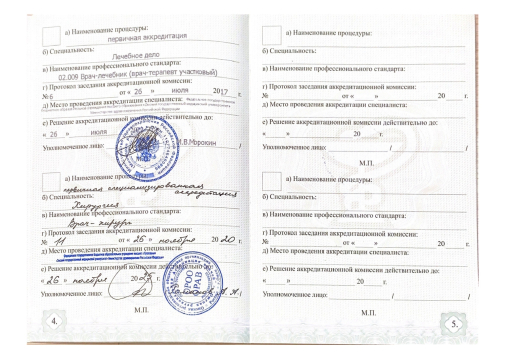 а) Наименование процедуры:
первичная аккредитация
б) Специальность:
Лечебное дело
в) Наименование профессионального стандарта:
02.009 Врач-лечебник (врач-терапевт участковый)
г) Протокол заседания аккредитационной комиссии:
№6 от « 26 » июля 2017 г.
д) Место проведения аккредитации специалиста:
е) Решение аккредитационной комиссии действительно до:
« 26 » июля
Уполномоченное лицо: И.В.Морокин /
М.П.
а) Наименование процедуры:
первичная специализированная
аккредитация
б) Специальность:
Хирургия
в) Наименование профессионального стандарта:
Врач-хирург
г) Протокол заседания аккредитационной комиссии:
№ 11 от « 26 » ноября 2020 г.
д) Место проведения аккредитации специалиста:
е) Решение аккредитационной комиссии действительно до:
« 26 » ноября 2025 г.
Уполномоченное лицо:
М.П.
4.
а) Наименование процедуры:
б) Специальность:
в) Наименование профессионального стандарта:
г) Протокол заседания аккредитационной комиссии:
№ от « » 20 г.
д) Место проведения аккредитации специалиста:
е) Решение аккредитационной комиссии действительно до:
« » 20 г.
Уполномоченное лицо: / /
М.П.
а) Наименование процедуры:
б) Специальность:
в) Наименование профессионального стандарта:
г) Протокол заседания аккредитационной комиссии:
№ от « » 20 г.
д) Место проведения аккредитации специалиста:
е) Решение аккредитационной комиссии действительно до:
« » 20 г.
Уполномоченное лицо: / /
М.П.
5.